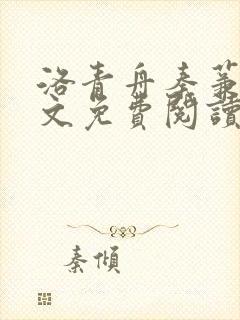 洛青舟秦蒹
文免費閱讀
秦傾